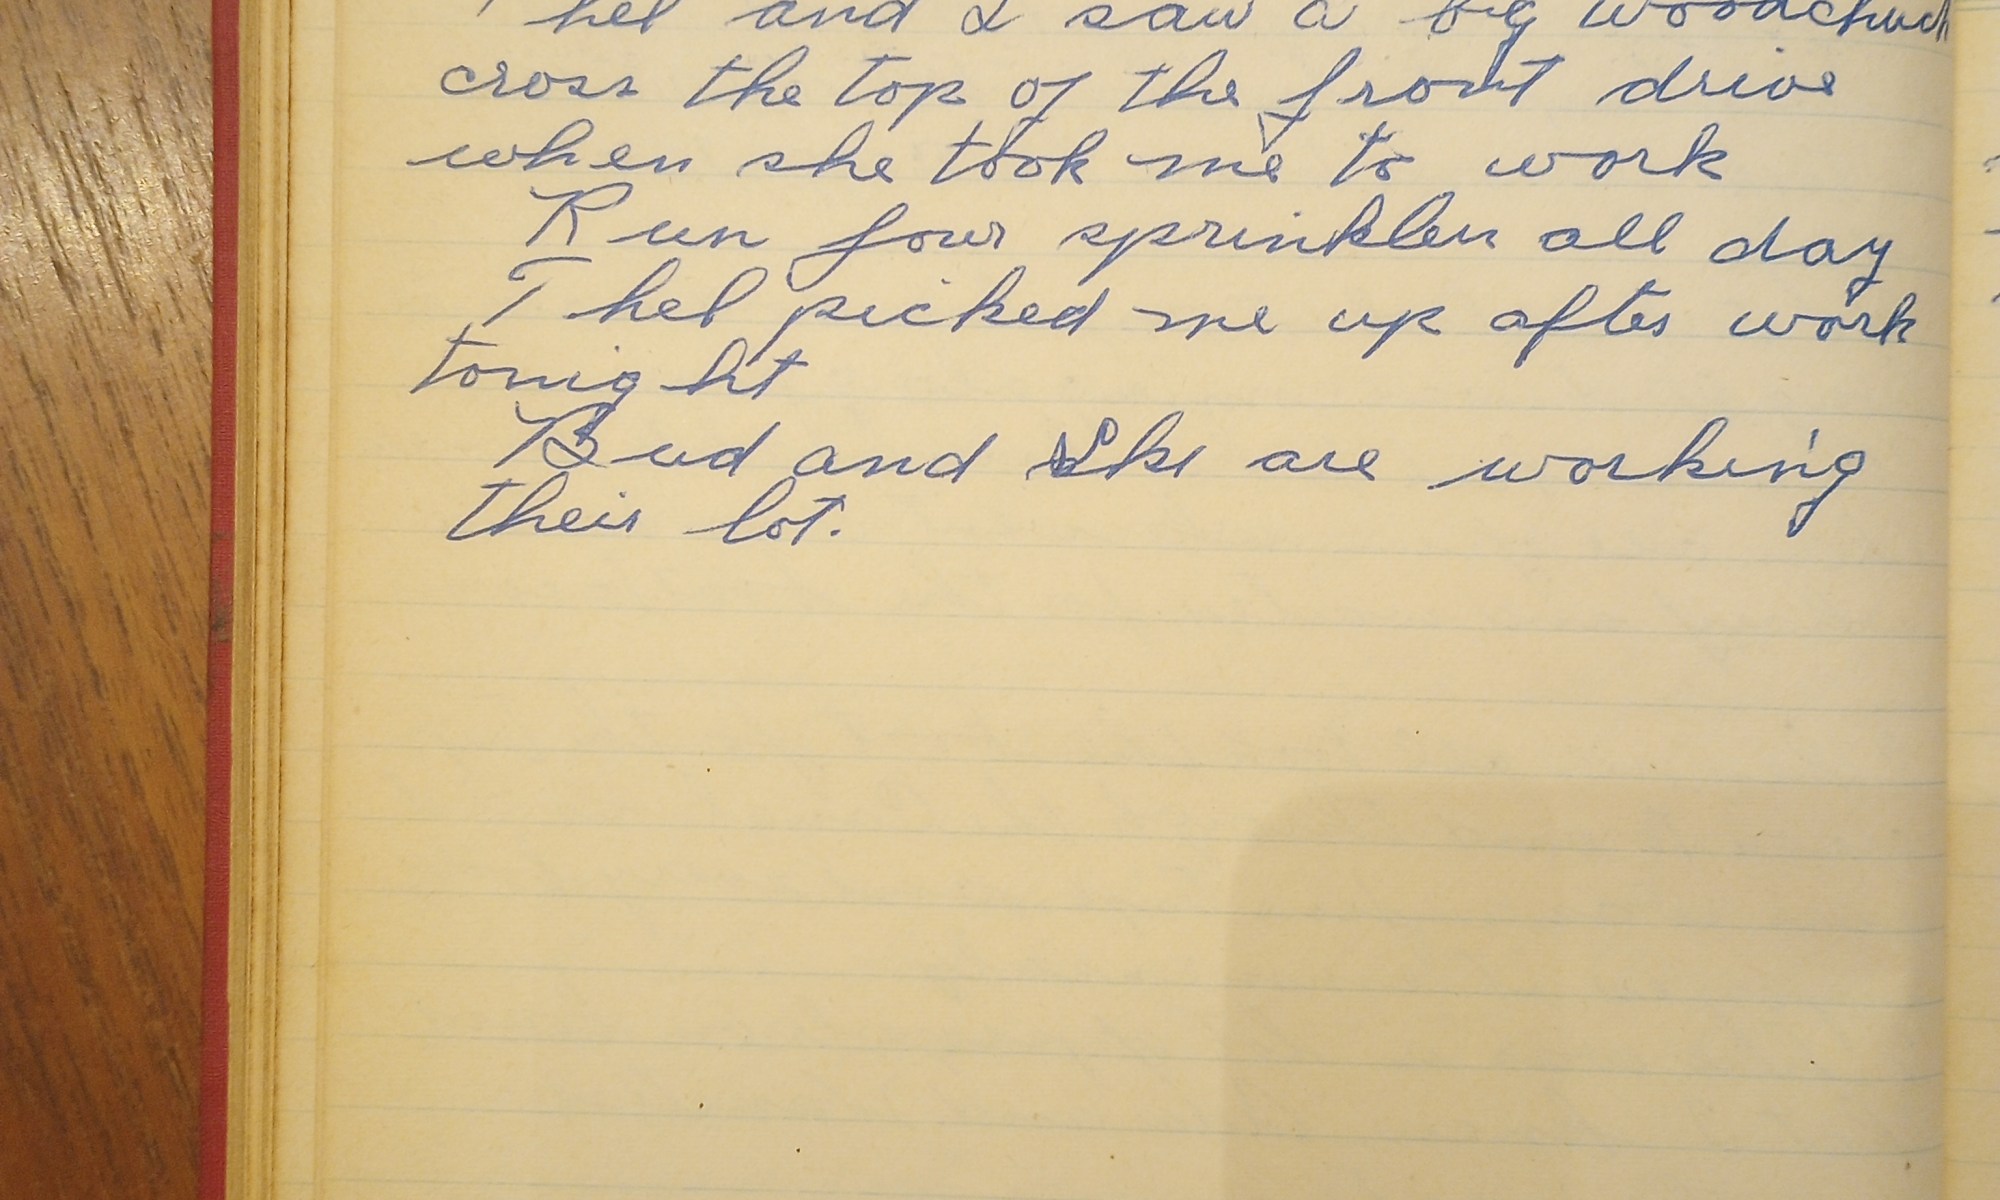 Thel and I saw a big woodchuck
cross the top of the front drive
when she took me to work
Run four sprinklers all day
Thel picked me up after work
tonight
Bud and Ike are working
their lot.